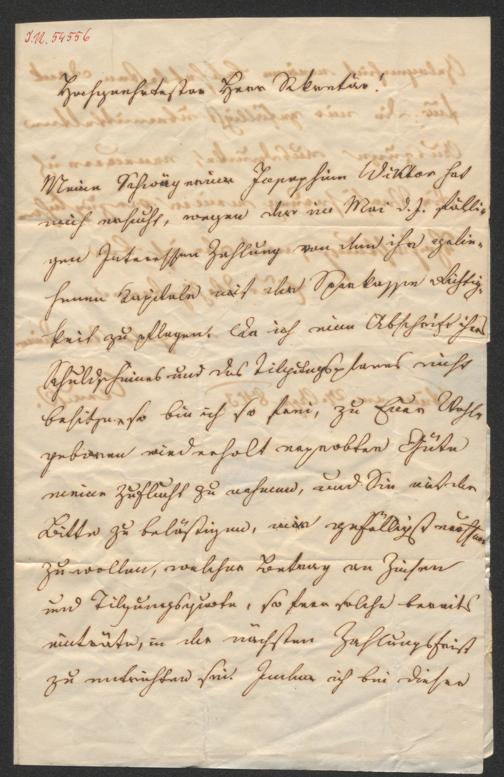 I.N. 54556
Hochgeehrtester Herr Sekretär!
Meine Schwägerin Josephine Wiktor hat
mich ersucht, wegen der im Mai d. J. fälli-
gen Interessen Zahlung von dem ihr gelie-
henen Kapitale mit der Sparkasse Richtig-
keit zu pflegen. Da ich eine Abschrift ihres
Schuldscheines und des Tilgungsplanes nicht
besitze, so bin ich so frei, zu Euer Wohl-
geboren wiederholt erprobten Güte
meine Zuflucht zu nehmen, und Sie mit der
Bitte zu belästigen, mir gefälligst
zu wollen, welcher Betrag an Zinsen
und Tilgungsquote, so fern solche bereits
einträte, in der nächsten Zahlungsfrist
zu entrichten sei. Indem ich bei dieser